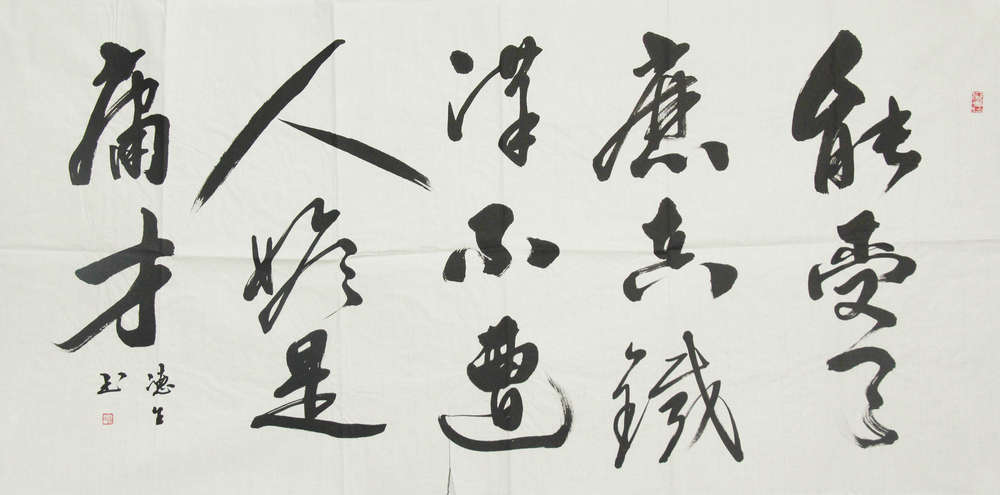 能受天
磨真鐵
漢不遭
人嫉是
庸才